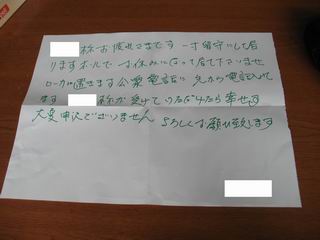 様お疲れさまです 一寸留守にして居
りますホールで お休みになって居て下さいませ
ロカに置きます公衆電話に 兄から電話入れて
ます 様が受けていただけたら幸せです
大変申訳ございません よろしくお願い致します